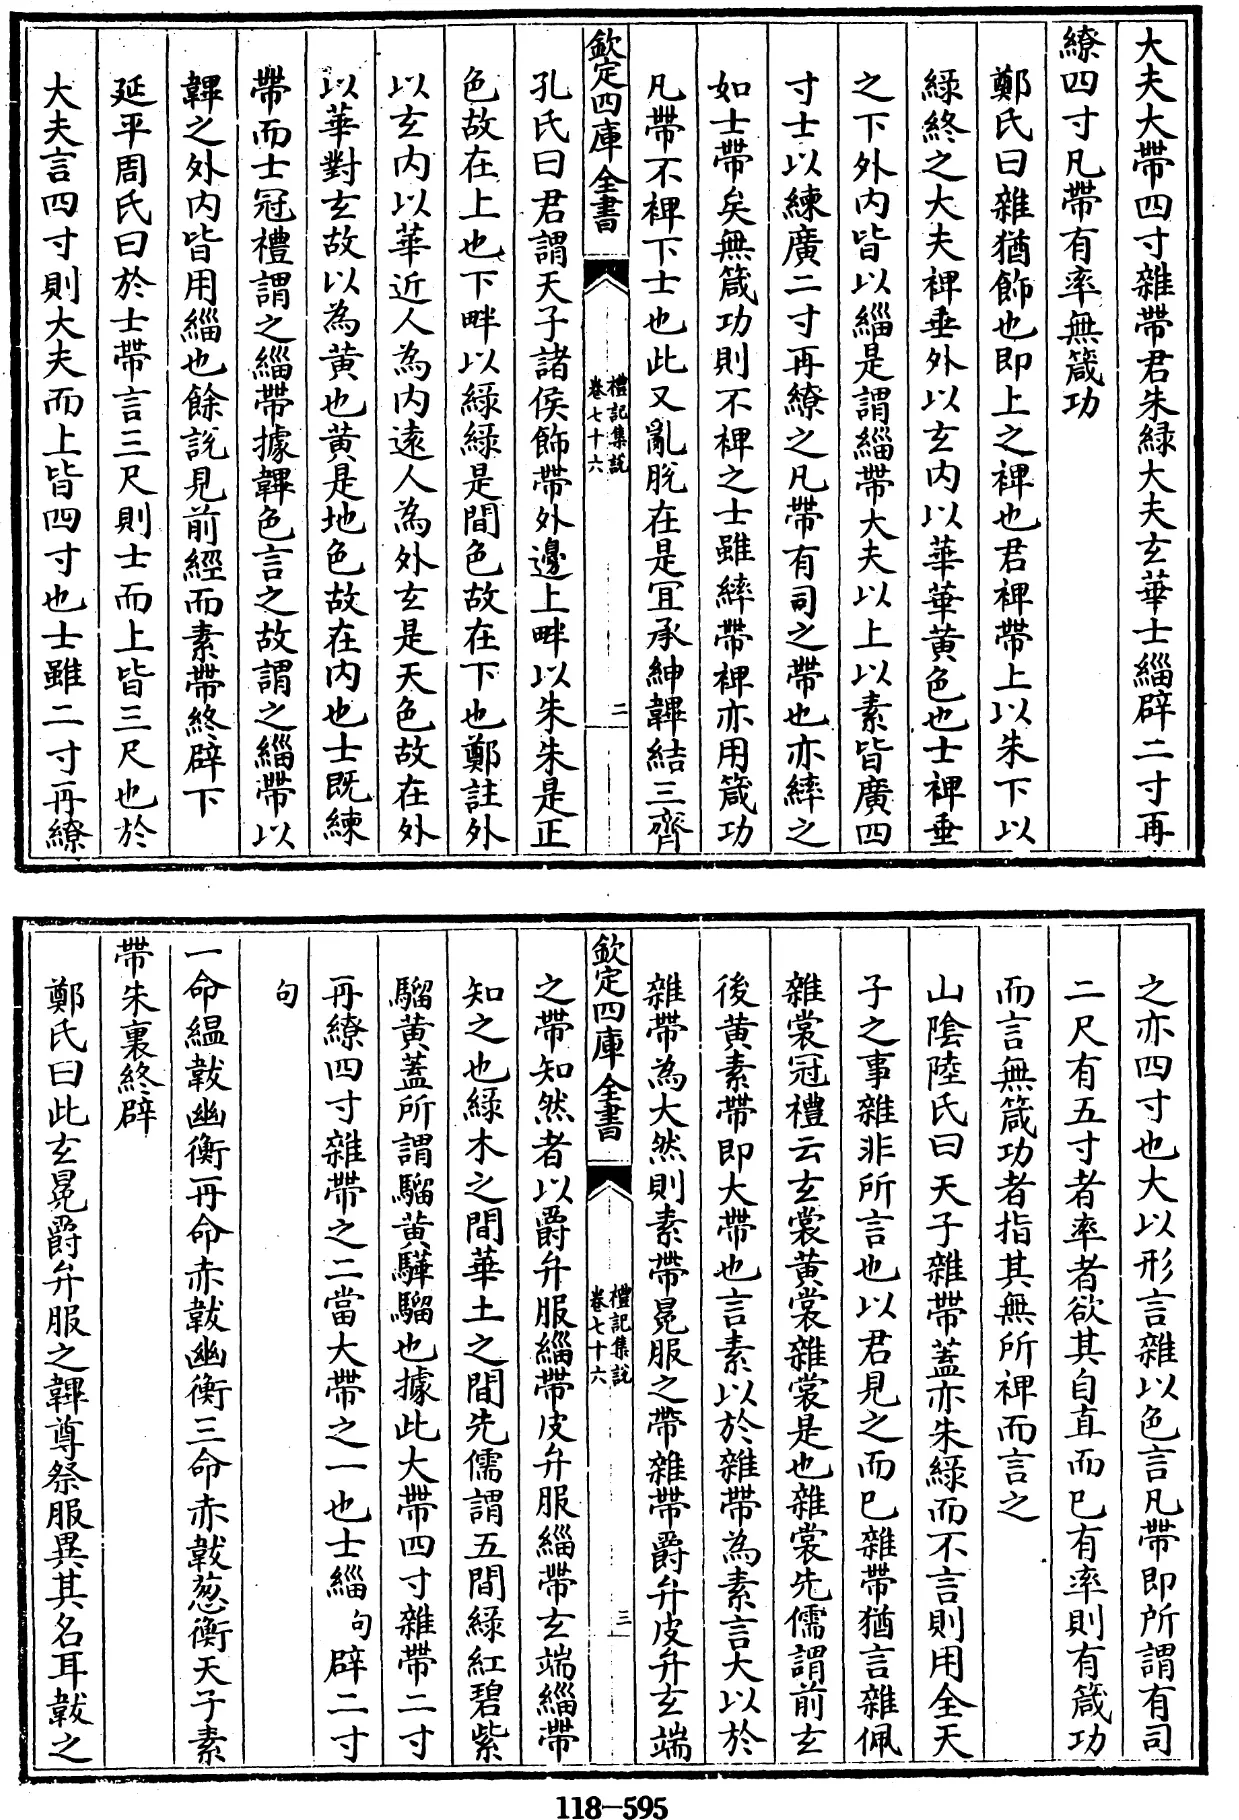 大夫大帶四寸雜帶君朱緑大夫玄華士緇辟二寸再
繚四寸凡帶有率無箴功
鄭氏曰雜猶飾也即上之裨也君裨帶上以朱下以
緑終之大夫裨垂外以玄内以華華黄色也士裨垂
之下外内皆以緇是謂緇帶大夫以上以素皆廣四
寸士以練廣二寸再繚之凡帶有司之帶也亦繂之
如士帶矣無箴功則不裨之士雖繂帶裨亦用箴功
凡帶不裨下士也此又亂脱在是宜承紳韠結三齊
欽定四庫全書
禮記集説
卷七十六
二
孔氏曰君謂天子諸侯飾帶外邊上畔以朱朱是正
色故在上也下畔以緑緑是間色故在下也鄭註外
以玄内以華近人為内逺人為外玄是天色故在外
以華對玄故以為黄也黄是地色故在内也士既練
帶而士冠禮謂之緇帶據韠色言之故謂之緇帶以
韠之外内皆用緇也餘説見前經而素帶終辟下
延平周氏曰於士帶言三尺則士而上皆三尺也於
大夫言四寸則大夫而上皆四寸也士雖二寸再繚
之亦四寸也大以形言雜以色言凡帶即所謂有司
二尺有五寸者率者欲其自直而已有率則有箴功
而言無箴功者指其無所裨而言之
山隂陸氏曰天子雜帶蓋亦朱緑而不言則用全天
子之事雜非所言也以君見之而已雜帶猶言雜佩
雜裳冠禮云玄裳黄裳雜裳是也雜裳先儒謂前玄
後黄素帶即大帶也言素以於雜帶為素言大以於
雜帶為大然則素帶冕服之帶雜帶爵弁皮弁玄端
欽定四庫全書
禮記集説
卷七十六
三
之帶知然者以爵弁服緇帶皮弁服緇帶玄端緇帶
知之也緑木之間華土之間先儒謂五間緑紅碧紫
騮黄蓋所謂騮黄驊騮也據此大帶四寸雜帶二寸
再繚四寸雜帶之二當大帶之一也士緇句辟二寸
句
一命縕韍幽衡再命赤韍幽衡三命赤韍葱衡天子素
帶朱裏終辟
鄭氏曰此玄冕爵弁服之韠尊祭服異其名耳韍之
118-595